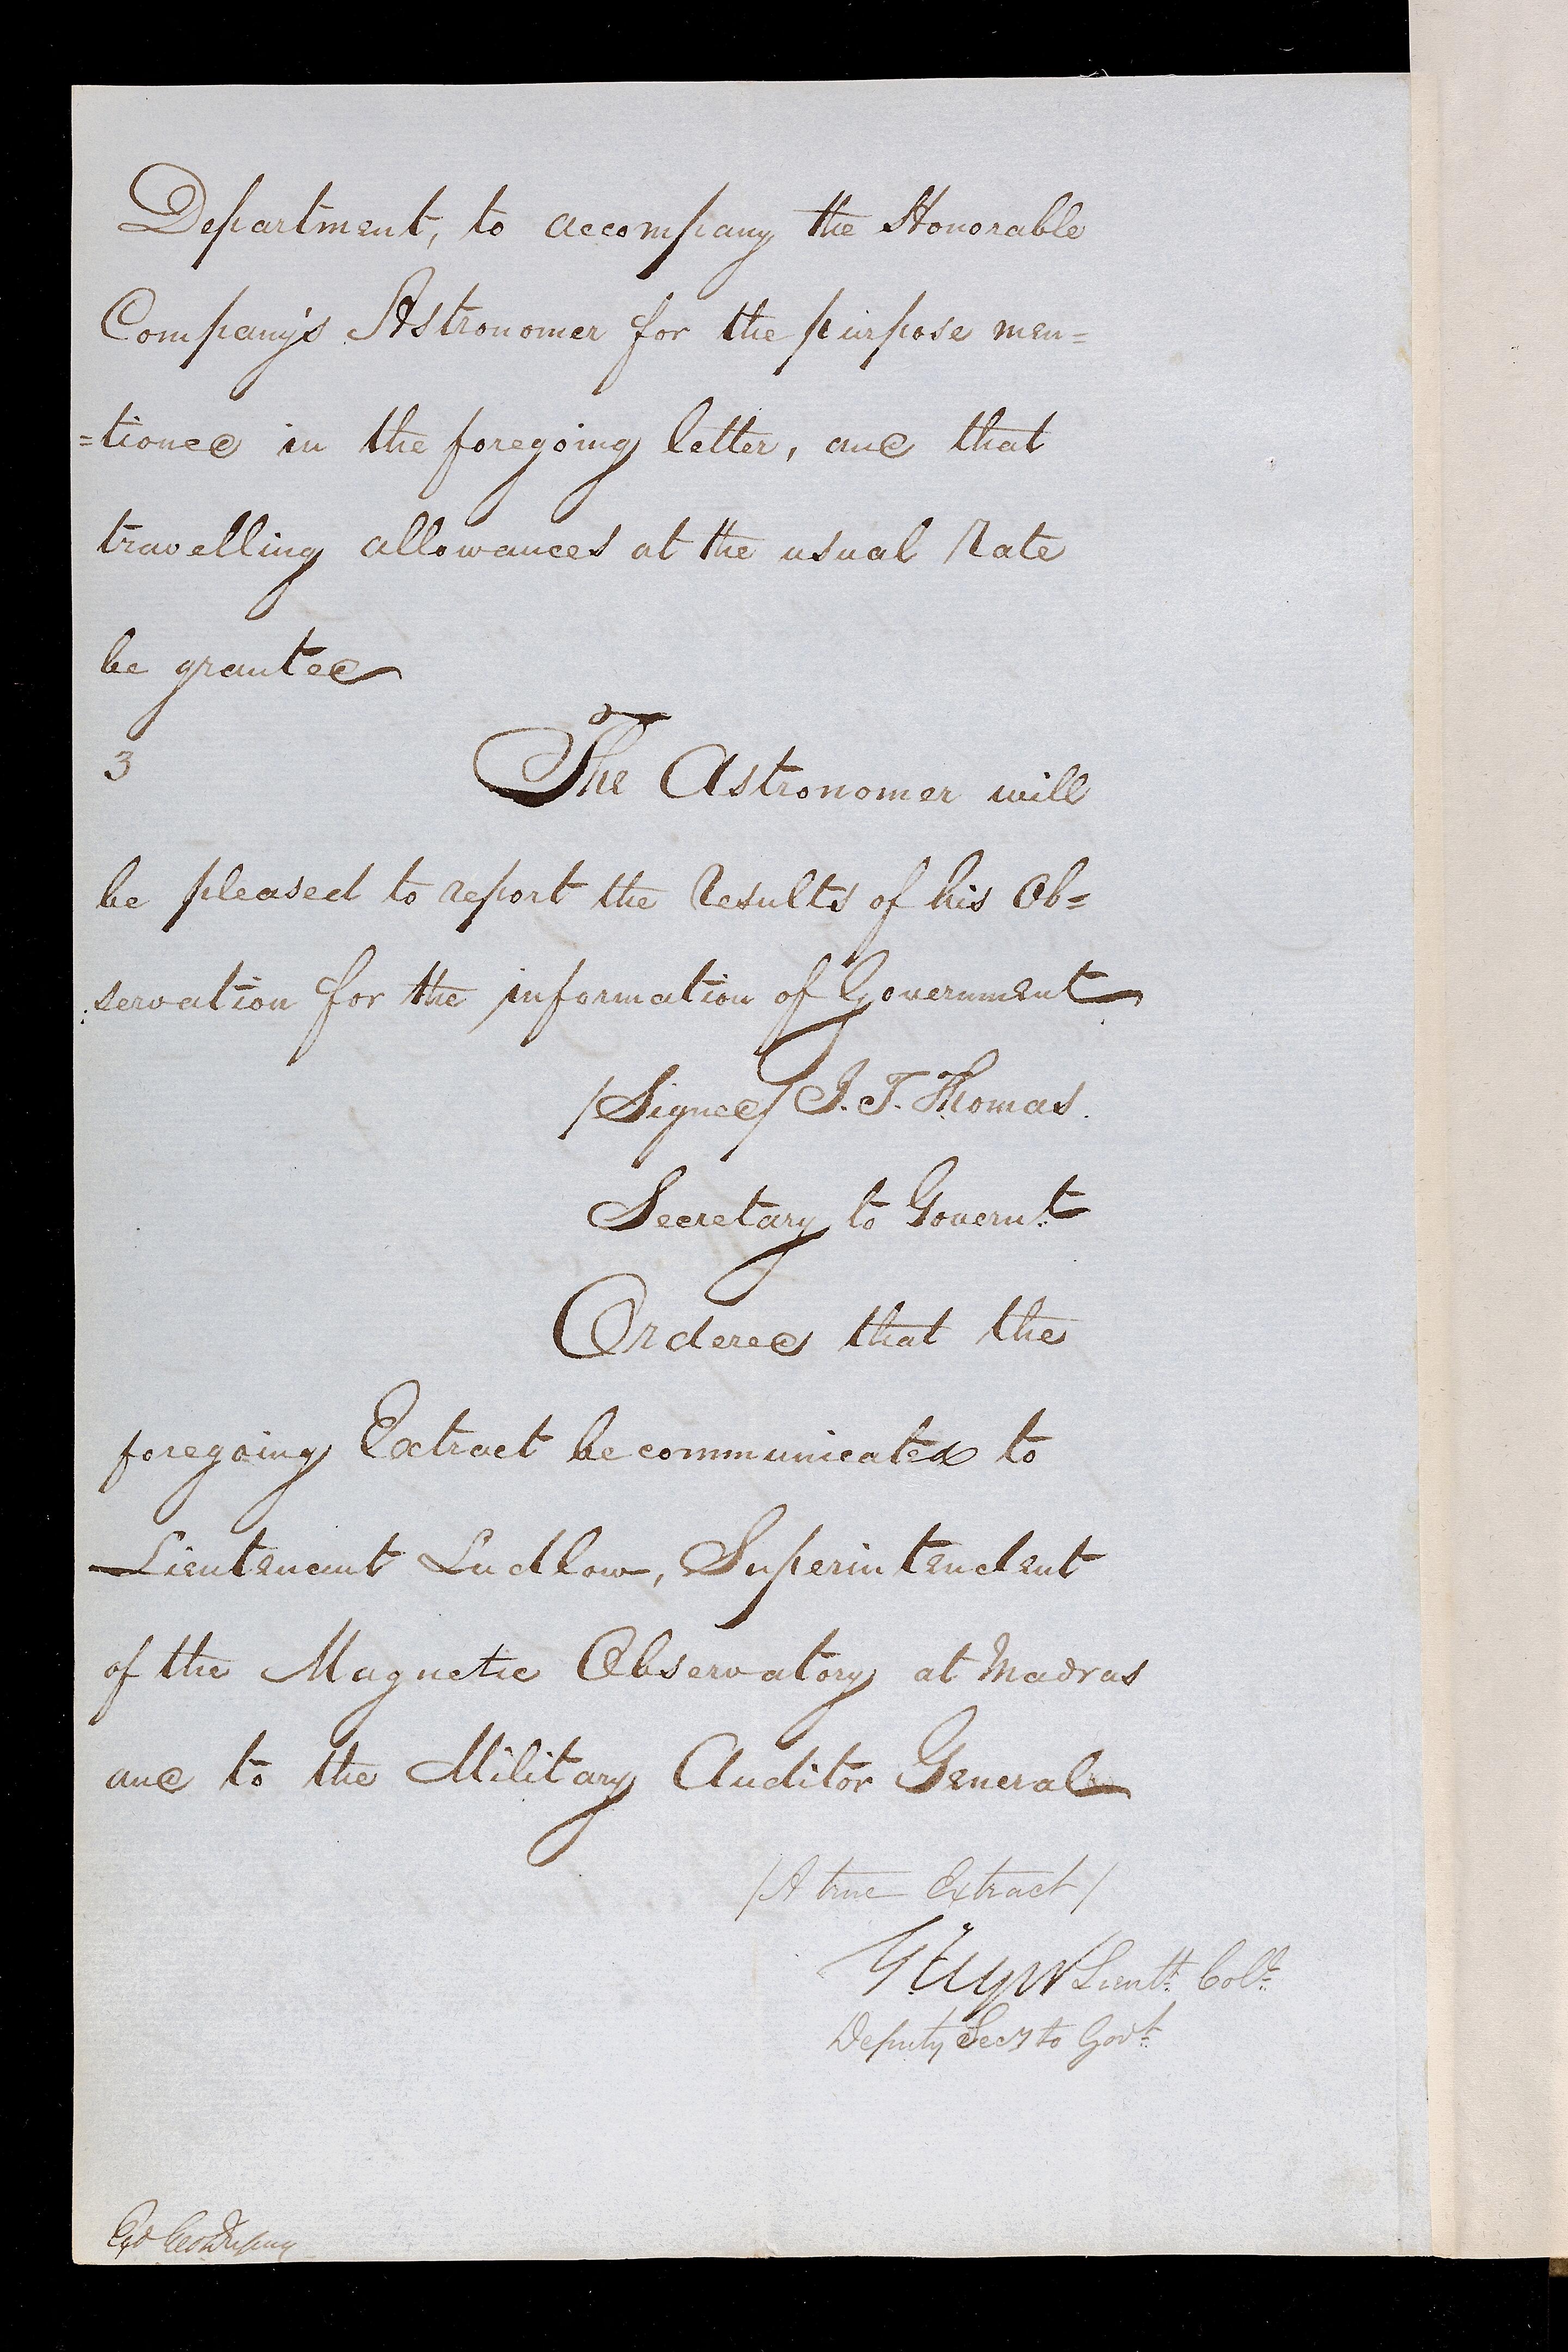 Department, to accompany the Honorable
Company's Astronomer for the purpose men=
=tioned in the foregoing letter, and that
travelling allowances at the usual Rate
be granted
3 The Astronomer will
be pleased to report the Results of his Ob=
:servation for the information of Government
/Signed/ J. F. Thomas.
Secretary to Governt
Ordered that the
foregoing Extract be communicated to
Lieutenant Ludlow, Superintendent
of the Magnetic Observatory at Madras
and to the Military Auditor General
/A true Extract/
Lieutt. Coll.
Deputy Secy to Govt.
Exd Geo